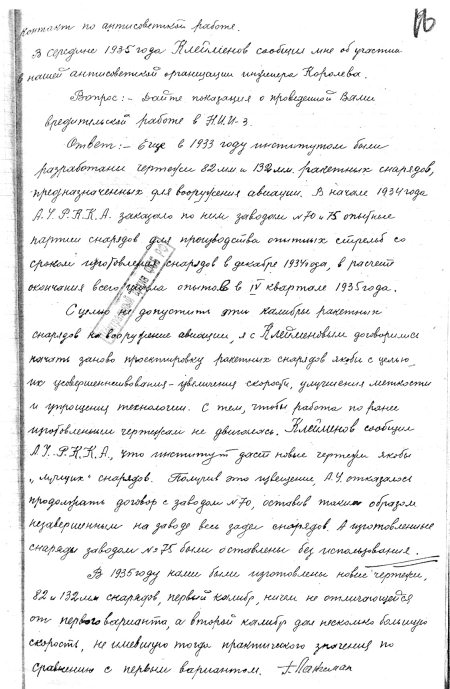 контакт по антисоветской работе.
В середине 1935 года Клейменов сообщил мне об участии
в нашей антисоветской организации инженера Королева.
Вопрос: - Дайте показания о проведенной Вами
вредительской работе в Н.И.И-3.
Ответ: - Еще в 1933 году институтом были
разработаны чертежи 82 мм и 132 мм. ракетных снарядов,
предназначенных для вооружения авиации. В начале 1934 года
А.У. Р.К.К.А. заказало по ним заводам №70 и 75 опытные
партии снарядов для производства опытных стрельб со
сроком изготовления снарядов в декабре 1934 года, в расчете
окончания всего опытов в IV квартале 1935 года.
С целью не допустить эти калибры ракетных
снарядов на вооружение авиации, я с Клейменовым договорились
начать заново проектировку ракетных снарядов якобы с целью
их усовершенствования - увеличения скорости, улучшения меткости
и упрощения технологии. С тем, чтобы работа по ранее
изготовленным чертежам не двигалась. Клейменов сообщил
А.У. Р.К.К.А., что институт даст новые чертежи якобы
"лучших" снарядов. Получив это извещение, А.У. отказалось
продолжать договор с заводом №70, оставив таким образом
незавершенным на заводе весь задел снарядов. А изготовленные
снаряды заводом №75 были оставлены без использования.
В 1935 году нами были изготовлены новые чертежи,
82 и 132 мм снарядов, первый калибр, ничем не отличающийся
от первого варианта, а второй калибр дал несколько большую
скорость, не имевшую тогда практического значения по
сравнению с первым вариантом. Г. Лангемак